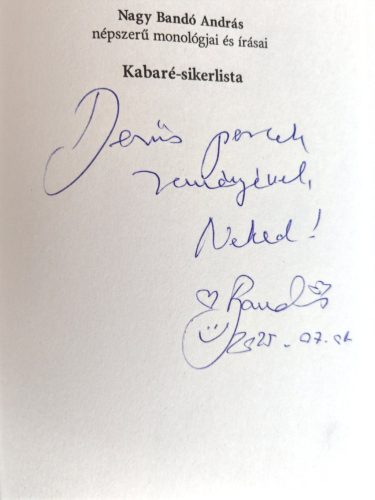 Nagy Bandó András
népszerű monológjai és írásai
Kabaré-sikerlista
Derűs percek
reményével,
Neked!
Bandó
2025-07-